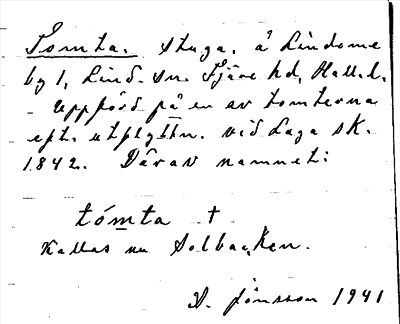 Tomta. stuga, å Lindome
by 1, Lind. sn. Fjäre hd, Hall. l.
- Uppförd på en av tomterna
eft. utflyttn. vid Laga sk.
1842. Därav namnet:
tómta †
Kallas nu Solbacken.
A. Jönsson 1941